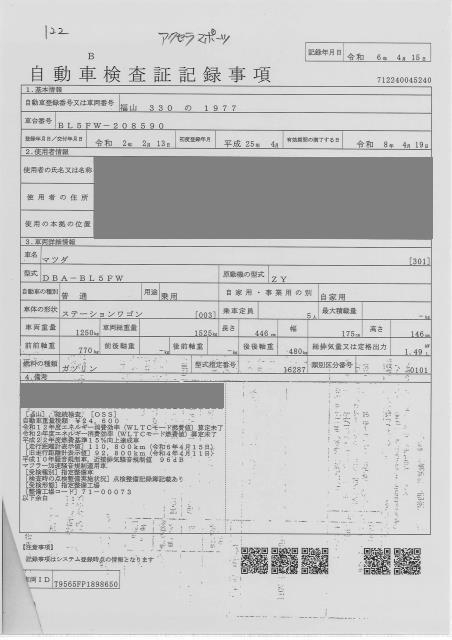 122
アクセラスポーツ
記録年月日 令和 6年 4月 15日
B
自動車検査証記録事項
712240045240
1.基本情報
自動車登録番号又は車両番号 福山 330 の 1977
車台番号 BL5FW-208590
登録年月日/交付年月日 令和 2年 2月 13日 初度登録年月 平成 25年 4月 有効期間の満了する日 令和 8年 4月 19日
2.使用者情報
使用者の氏名又は名称
使用者の住所
使用の本拠の位置
3.車両詳細情報
車名 マツダ [301]
型式 DBA-BL5FW 原動機の型式 ZY
自動車の種別 普通 用途 乗用 自家用・事業用の別 自家用
車体の形状 ステーションワゴン [003] 乗車定員 5人 最大積載量 -kg
車両重量 1250kg 車両総重量 1525kg 長さ 446cm 幅 175cm 高さ 146cm
前前軸重 770kg 前後軸重 -kg 後前軸重 -kg 後後軸重 480kg 総排気量又は定格出力 1.49
燃料の種類 ガソリン 型式指定番号 16287 類別区分番号 0101
4.備考
[福山],継続検査,[OSS]
自動車重量税額 ¥24,600
令和12年度エネルギー消費効率(WLTCモード燃費値)算定未了
令和2年度エネルギー消費効率(WLTCモード燃費値)算定未了
平成22年度燃費基準15%向上達成車
[走行距離計表示値]110,800km(令和6年4月15日)
[旧走行距離計表示値]92,800km(令和4年4月11日)
平成10年騒音規制車,近接排気騒音規制値 96dB
マフラー加速騒音規制適用車
[受検種別]指定整備車
[検査時の点検整備実施状況]点検整備記録簿記載あり
[受検形態]指定整備工場
[整備工場コード]71-00073
以下余白
【注意事項】
記録事項はシステム登録時点の情報となります
車両ID 79565FP1898650